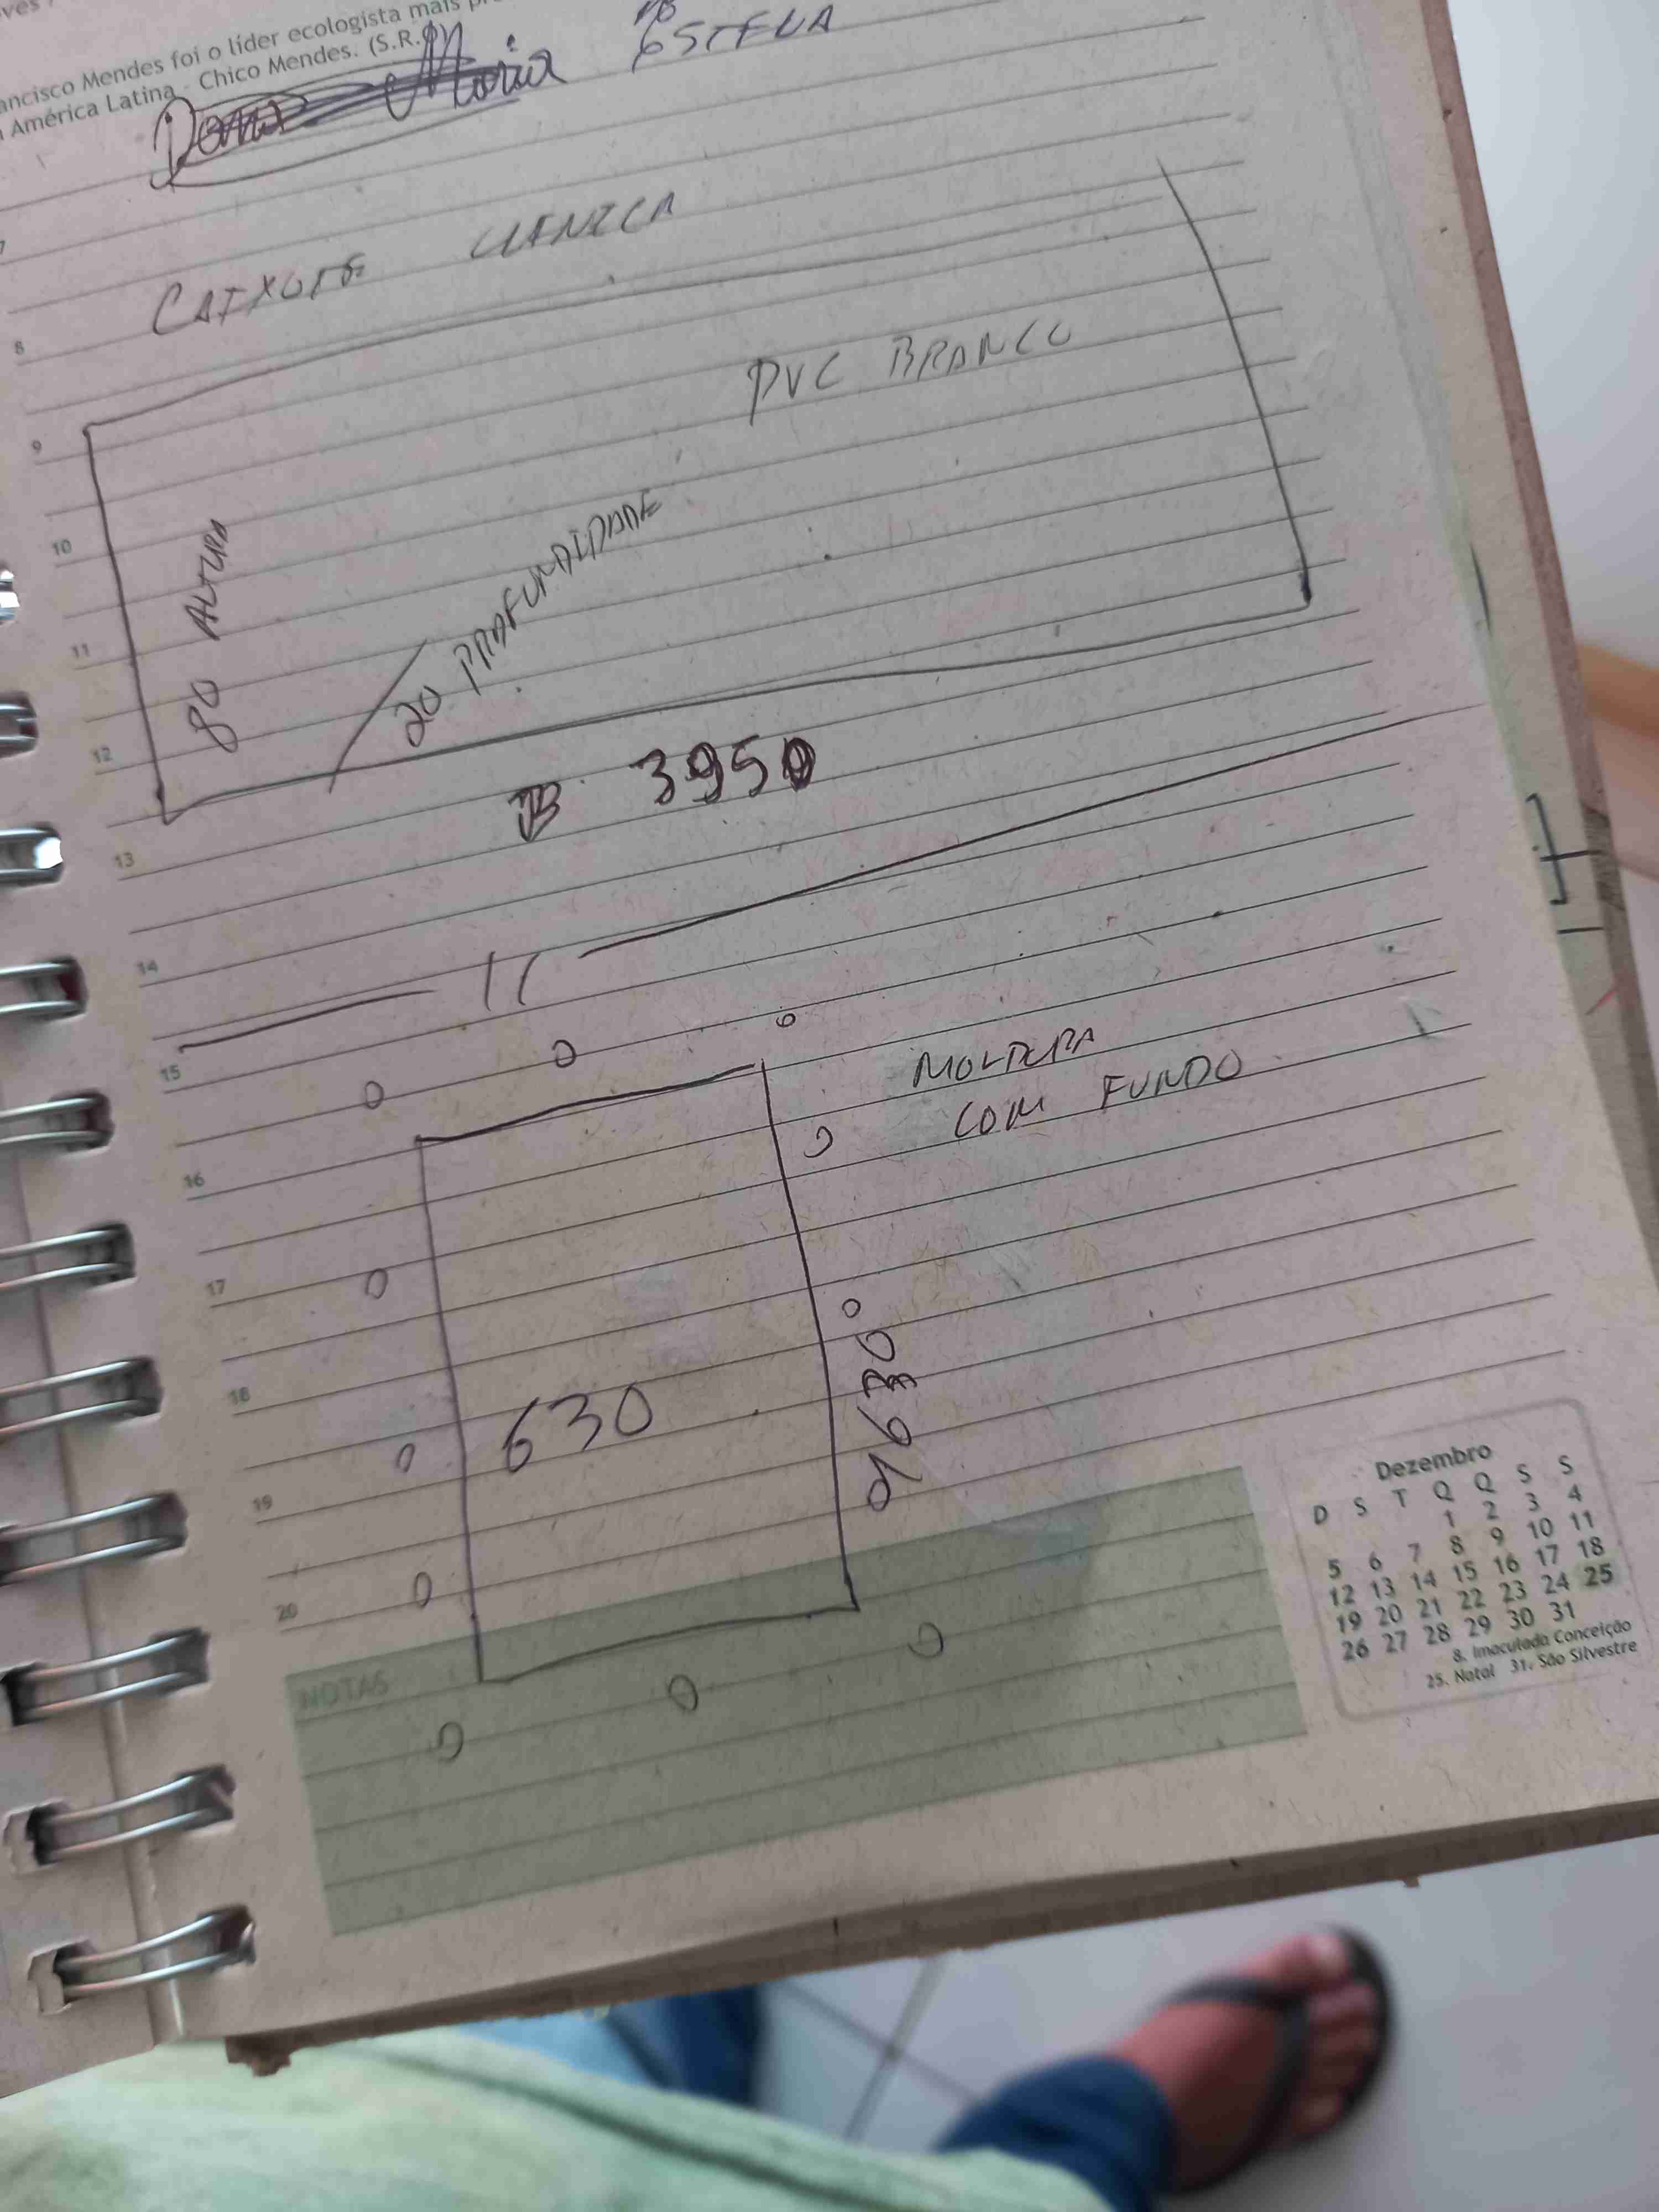 ancisco Mendes foi o líder ecologista mais
América Latina - Chico Mendes. (S.R.
Maria
ESTELA
CAIXOTE CLINICA
PVC BRANCO
80 ALTURA
20 PROFUNDIDADE
3950
MOLDURA
COM FUNDO
630
9630
7
8
9
10
11
12
13
14
15
16
17
18
19
20
NOTAS
Dezembro
D S T Q Q S S
1 2 3 4
5 6 7 8 9 10 11
12 13 14 15 16 17 18
19 20 21 22 23 24 25
26 27 28 29 30 31
8. Imaculada Conceição
25. Natal 31. São Silvestre